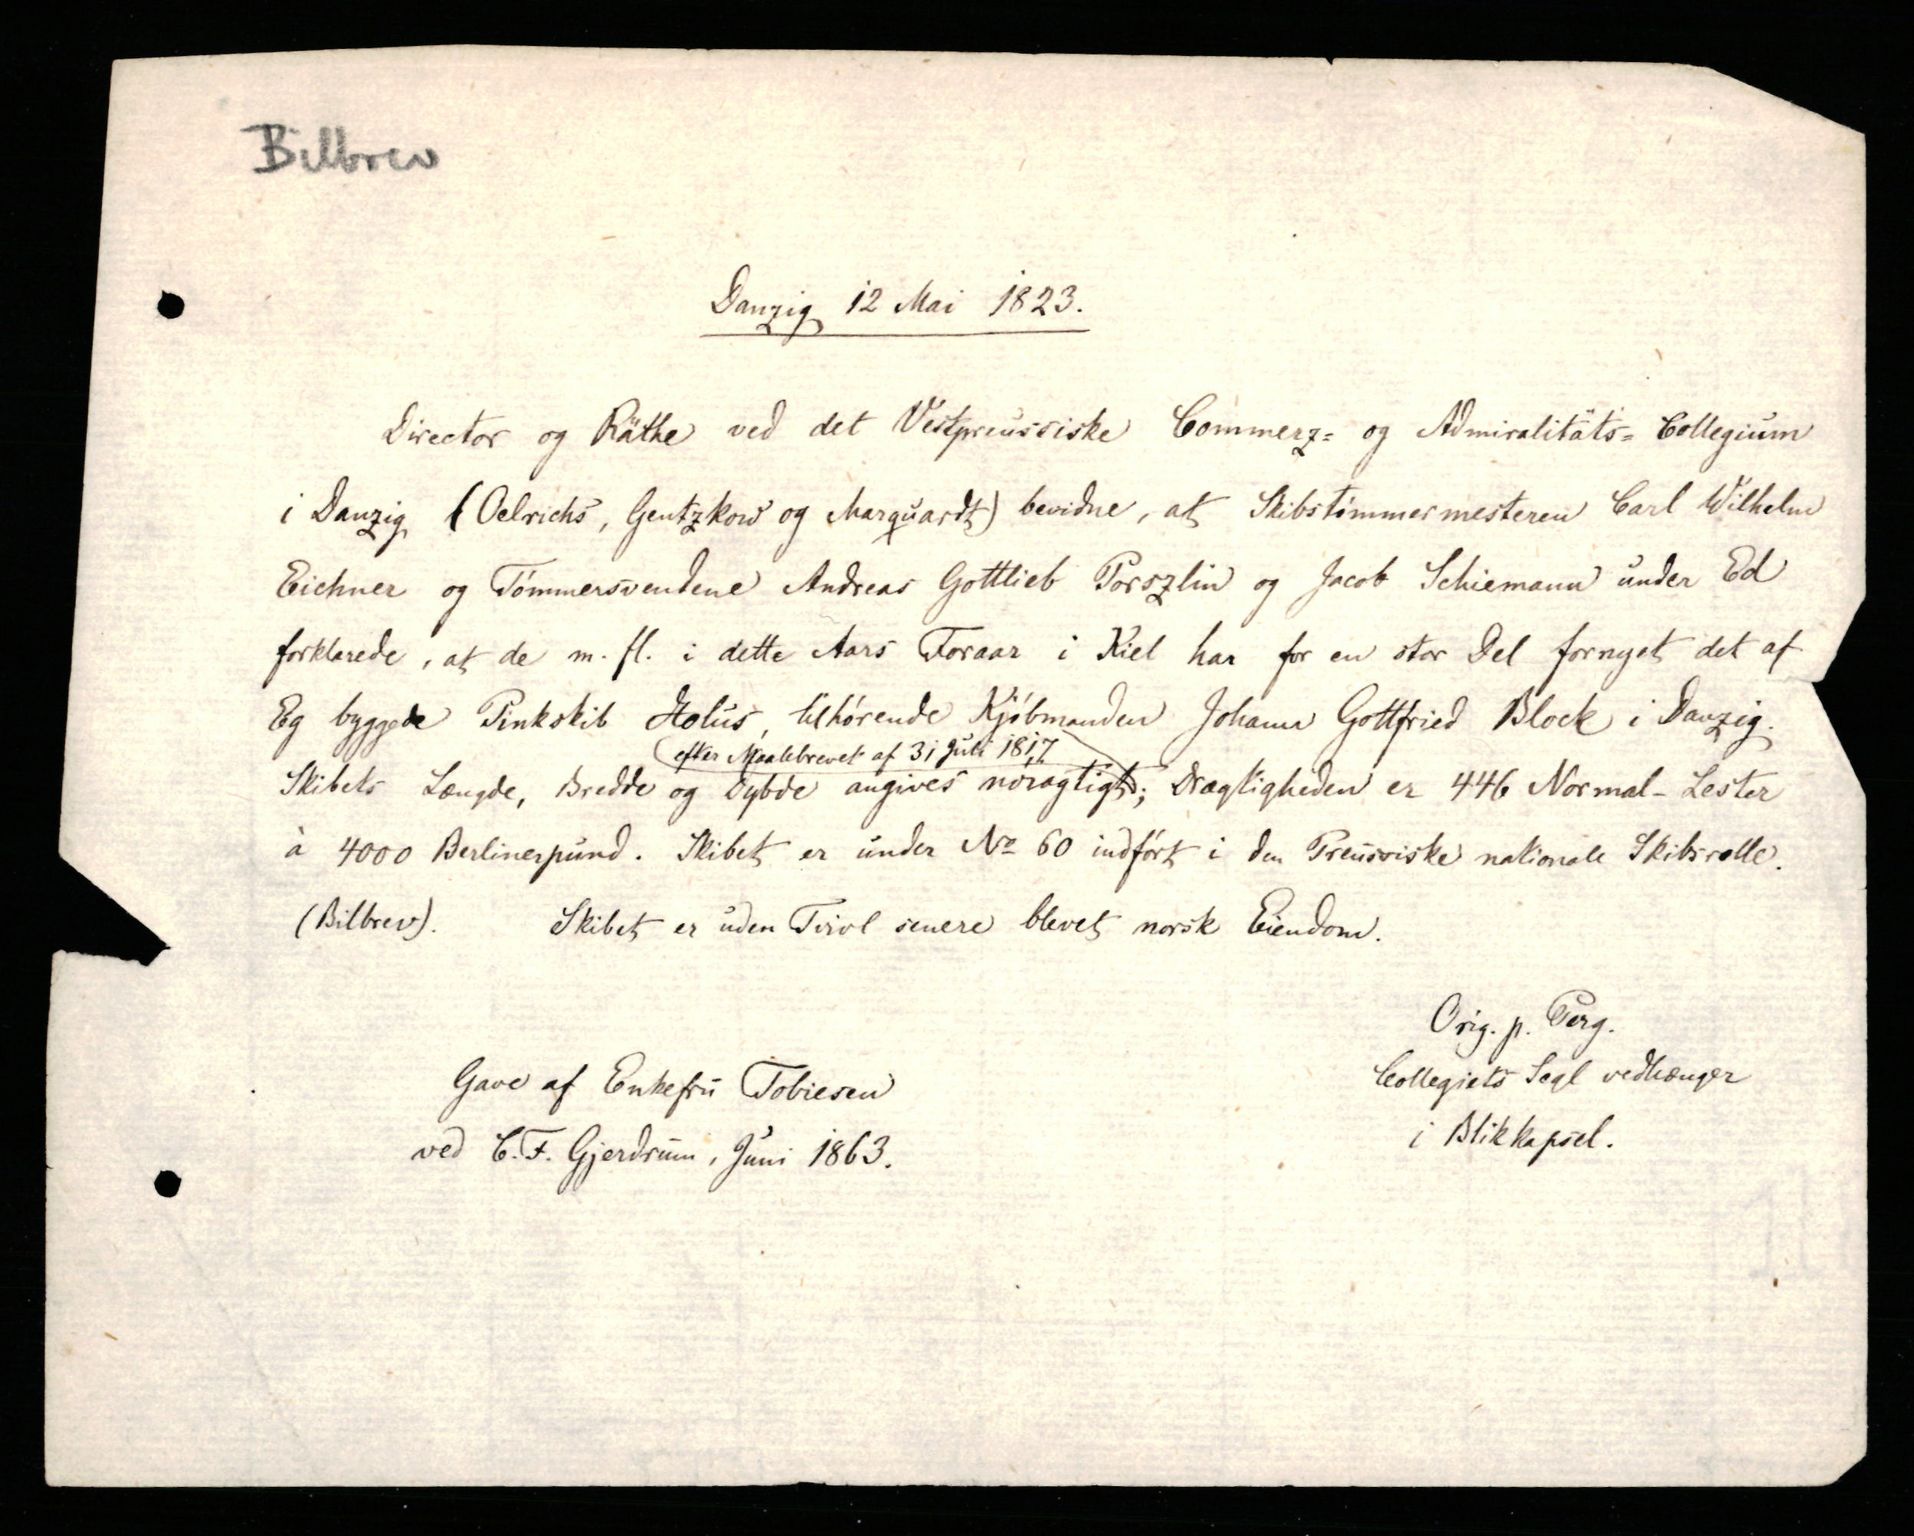 Bilbrev
Danzig 12 Mai 1823.
Director og Räthe ved det Vestpreussiske Commerz= og Admiralitäts= Collegium
i Danzig (Oelrichs, Gentzkow og Marquardt) bevidne, at Skibstömmermesteren Carl Wilhelm
Eichner og Tömmersvendene Andreas Gottlieb Porszlin og Jacob Schiemann under Ed
forklarede, at de m. fl. i dette Aars Foraar i Kiel har for en stor Del fornyet det af
Eg byggede Pinkskib Æolus, tilhørende Kjöbmanden Johann Gottfried Block i Danzig.
efter Maalebrevet af 31 Juli 1817
Skibets Længde, Bredde og Dybde angives nöiagtigt; Drægtigheden er 446 Normal-Lester
à 4000 Berlinerpund. Skibet er under No 60 indfört i den Preussiske nationale Skibsrolle.
(Bilbrev). Skibet er uden Tvivl senere blevet norsk Eiendom.
Orig. p. Perg.
Collegiets Segl vedhænger
i Blikkapsel.
Gave af Enkefru Tobiesen
ved C. F. Gjerdrum, Juni 1863.